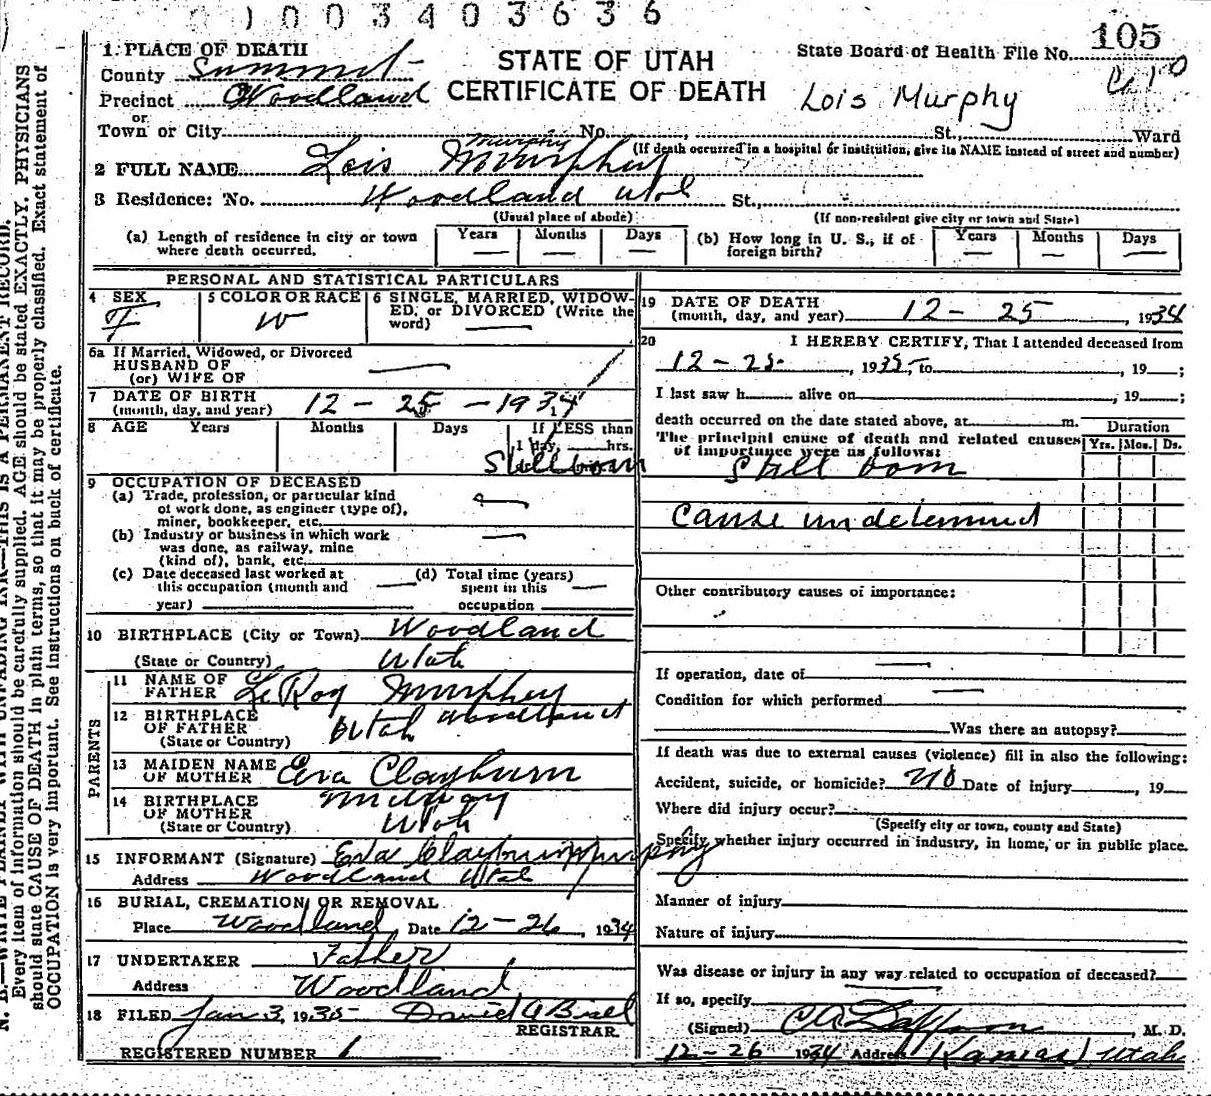 1003403636
1. PLACE OF DEATH
County Summit
Precinct Woodland
or
Town or City No. , St., Ward
STATE OF UTAH
CERTIFICATE OF DEATH
State Board of Health File No. 105
Lois Murphy
(If death occurred in a hospital or institution, give its NAME instead of street and number)
Murphy
2 FULL NAME Lois Murphey
3 Residence: No. Woodland Utah St.,
(Usual place of abode) (If non-resident give city or town and State)
(a) Length of residence in city or town where death occurred. Years — Months — Days — (b) How long in U. S., if of foreign birth? Years — Months — Days —
PERSONAL AND STATISTICAL PARTICULARS
4 SEX F 5 COLOR OR RACE W 6 SINGLE, MARRIED, WIDOWED, or DIVORCED (Write the word) —
6a If Married, Widowed, or Divorced
HUSBAND OF
(or) WIFE OF —
7 DATE OF BIRTH
(month, day, and year) 12 - 25 - 1934
8 AGE Years Months Days If LESS than
1 day, hrs.
Stillborn
9 OCCUPATION OF DECEASED
(a) Trade, profession, or particular kind
of work done, as engineer (type of),
miner, bookkeeper, etc. —
(b) Industry or business in which work
was done, as railway, mine
(kind of), bank, etc. —
(c) Date deceased last worked at
this occupation (month and
year) —
(d) Total time (years)
spent in this
occupation —
10 BIRTHPLACE (City or Town) Woodland
(State or Country) Utah
PARENTS
11 NAME OF
FATHER LeRoy Murphey
12 BIRTHPLACE
OF FATHER
(State or Country) Utah Woodland
13 MAIDEN NAME
OF MOTHER Eva Clayburn
14 BIRTHPLACE
OF MOTHER
(State or Country) Midway
Utah
15 INFORMANT (Signature) Eva Clayburn Murphy
Address Woodland Utah
16 BURIAL, CREMATION OR REMOVAL
Place Woodland Date 12-26, 1934
17 UNDERTAKER Father
Address Woodland
18 FILED Jan 3, 1935 David A
REGISTRAR.
REGISTERED NUMBER 1
19 DATE OF DEATH
(month, day, and year) 12 - 25, 1934
20 I HEREBY CERTIFY, That I attended deceased from
12 - 25-, 1935, to , 19—;
I last saw h alive on , 19—;
death occurred on the date stated above, at m.
The principal cause of death and related causes
of importance were as follows:
Duration
Yrs. Mos. Ds.
Still born
Cause undetermined
Other contributory causes of importance:
If operation, date of —
Condition for which performed —
Was there an autopsy?
If death was due to external causes (violence) fill in also the following:
Accident, suicide, or homicide? No Date of injury , 19
Where did injury occur?
(Specify city or town, county and State)
Specify whether injury occurred in industry, in home, or in public place.
Manner of injury
Nature of injury
Was disease or injury in any way related to occupation of deceased?
If so, specify
(Signed) , M. D.
12-26 1934 Address Kamas, Utah
N. B.—WRITE PLAINLY WITH UNFADING INK—THIS IS A PERMANENT RECORD.
Every item of information should be carefully supplied. AGE should be stated EXACTLY. PHYSICIANS
should state CAUSE OF DEATH in plain terms, so that it may be properly classified. Exact statement of
OCCUPATION is very important. See instructions on back of certificate.